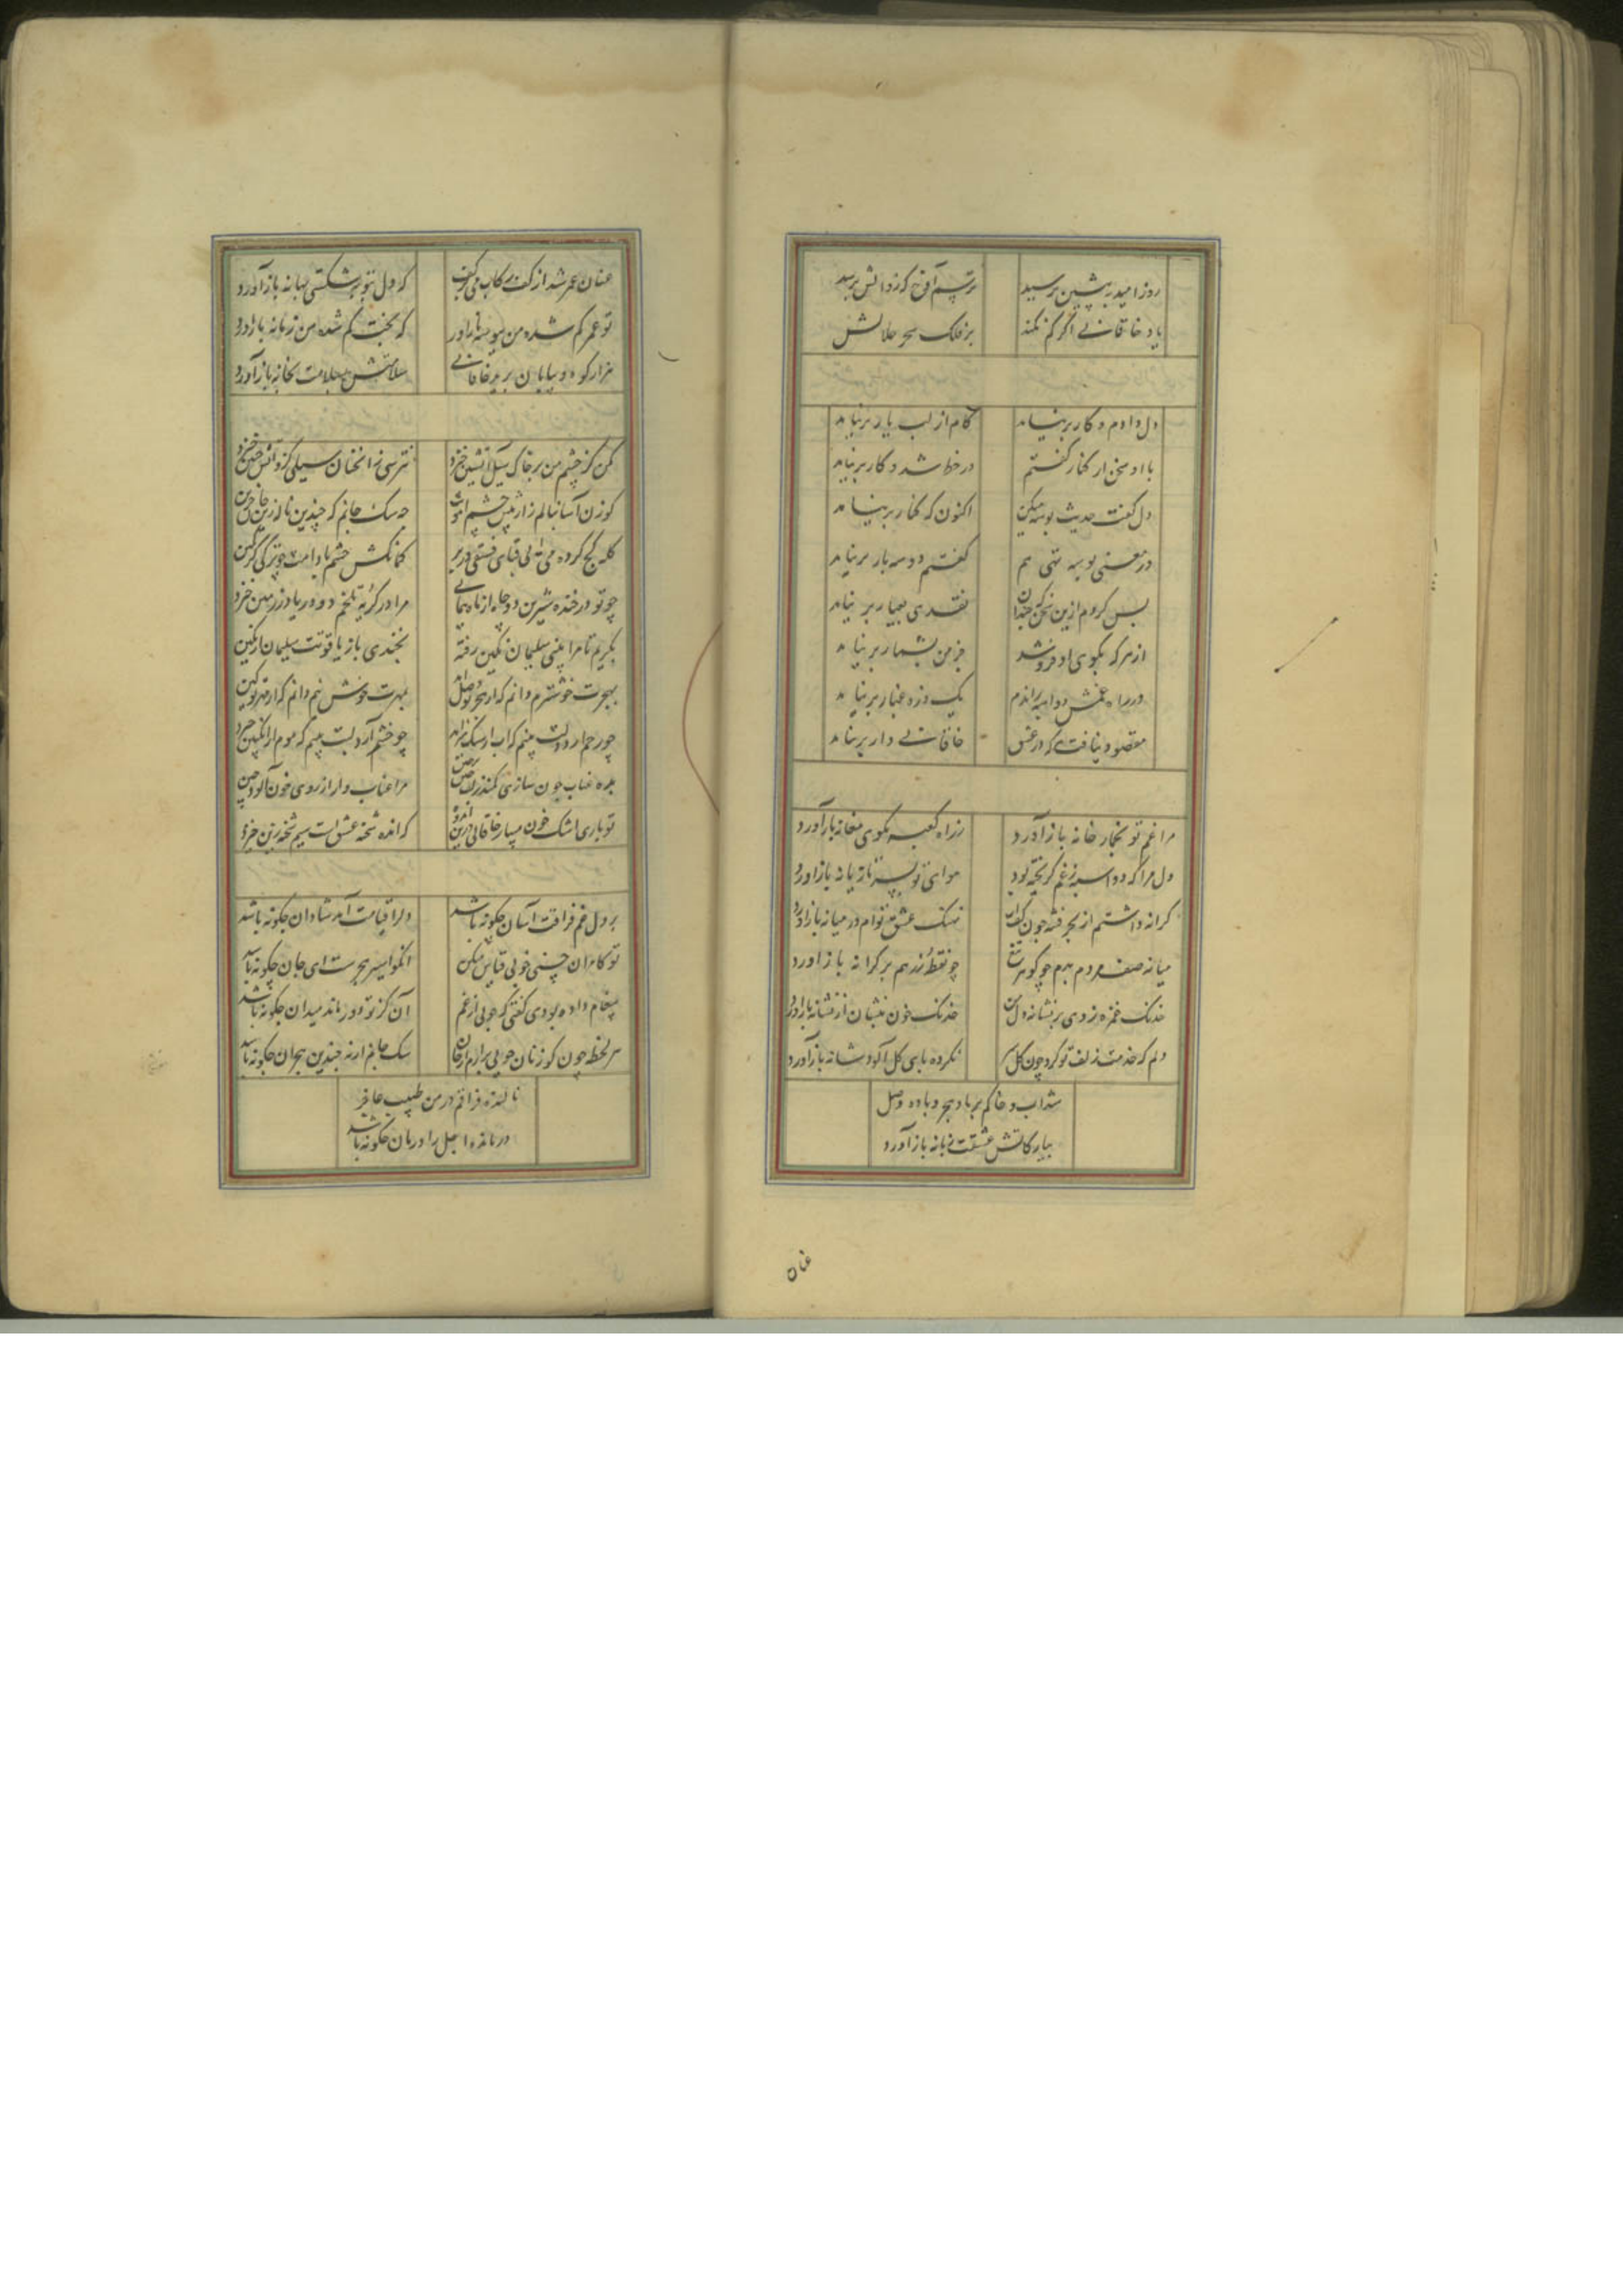 روز امید به پیشین برسید ترسم آفت که زوالش برسد
یاد خاقانی اگر کم نکند بر فلک سحر حلالش
دل دادم و کار برنیامد کام از لب یار برنیامد
با او سخن از کنار گفتم در خط شد و کار برنیامد
دل گفت حدیث بوسه میکن اکنون که کنار برنیامد
در معنی بوسه تهی هم گفتم دو سه بار برنیامد
بس کردم ازین سخن که چندان نقدی بعیار برنیامد
از هر که بکوی او فرو شد جز من بشمار برنیامد
در راه غمش دواسبه راندم یک ذره غبار برنیامد
مقصود نیافت که در عشق خاقانی وار برنیامد
مرا غم تو بخمار خانه باز آورد ز راه کعبه بکوی مغانه باز آورد
دل مرا که دواسبه ز غم گریخته بود هوای تو بسر تازیانه باز آورد
کرانه داشتم از بحر فتنه چون کف آب نهنگ عشق توام در میانه باز آورد
میانه صف مردم بدم چو گوهر تیغ چو نقطه زدهم بر کرانه باز آورد
خدنگ غمزه زدی بر نشانه دل من خدنگ خون بنشان از نشانه باز آورد
دلم که خدمت زلف تو کرد چون گل سر نکرده پای گل آلود شانه باز آورد
شد آب و خاکم بر باد هجر و باده وصل
بیار کاتش عشقت زبانه باز آورد
عنان
عنان عمر شد از کف رکاب می بکف که دل بتوبه شکستن بهانه باز آورد
تو عمر گم شده من ببوسه باز آور که بخت گم شده من زمانه باز آورد
هزار کوه و بیابان برید خاقانی سلامتش بسلامت بخانه باز آورد
مکن کز چشم من بر خاک سیل آتشین خیزد نترسی زانچنان سیلی کزو آتش چنین خیزد
گوزن آسا بنالم زار پیش چشم آهوت چه سگ جانم که چندین ناله زین جان حزین خیزد
کله کج کرده می آئی قبای فستقی در بر کمانکش چشم بادامت چو ترکی کز کمین خیزد
چو تو در خنده شیرین دو چاه از ماه بنمائی مرا در گریه تلخم دو دریا از زمین خیزد
بگریم تا مرا بینی سلیمان نگین رفته بخندی باز یاقوتت سلیمان را نگین خیزد
بهجرت خوشترم دانم که از هجر تو وصل آید بمهرت خوش نیم دانم که از مهر تو کین خیزد
چو رحم آرد دلت بینم که آب از سنگ میزاید چو خشم آرد لبت بینم که موم از انگبین خیزد
بده عناب چون سازی کمند زلف چین بر چین مرا عناب وار از روی خون آلود چین خیزد
تو باری اشک خون میبار خاقانی درین اندوه که اندوه شحنه عشق است سیم شحنه زین خیزد
بر دل غم فراقت آسان چگونه باشد دل را قیامت آمد شادان چگونه باشد
تو کامران حسنی خوبی قیاس میکن آنکو اسیر هجرست ای جان چگونه باشد
پیغام داده بودی گفتی که چونی از غم آن کز تو دور ماند میدان چگونه باشد
هر لحظه چون گوزنان هوئی برآرم از جان سگ جانم ارنه چندین هجران چگونه باشد
نالنده فراقم در من طبیب عاجز
درمانده اجل را درمان چگونه باشد